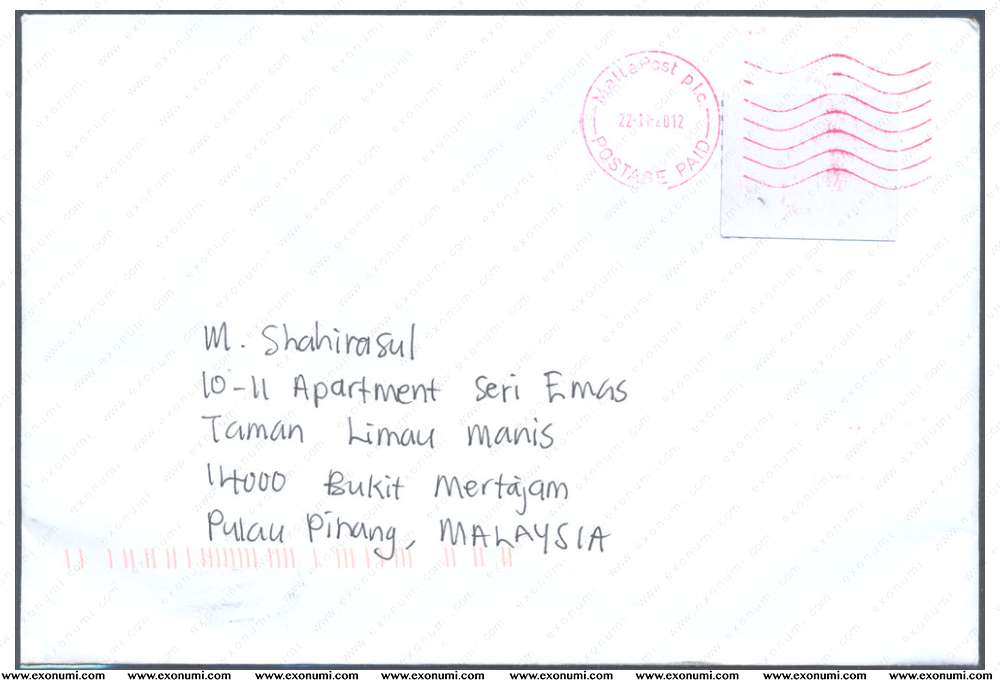 MaltaPost plc.
POSTAGE PAID
M. Shahirasul
10-11 Apartment Seri Emas
Taman Limau Manis
14000 Bukit Mertajam
Pulau Pinang, MALAYSIA
www.exonumi.com www.exonumi.com www.exonumi.com www.exonumi.com www.exonumi.com www.exonumi.com www.exonumi.com www.exonumi.com